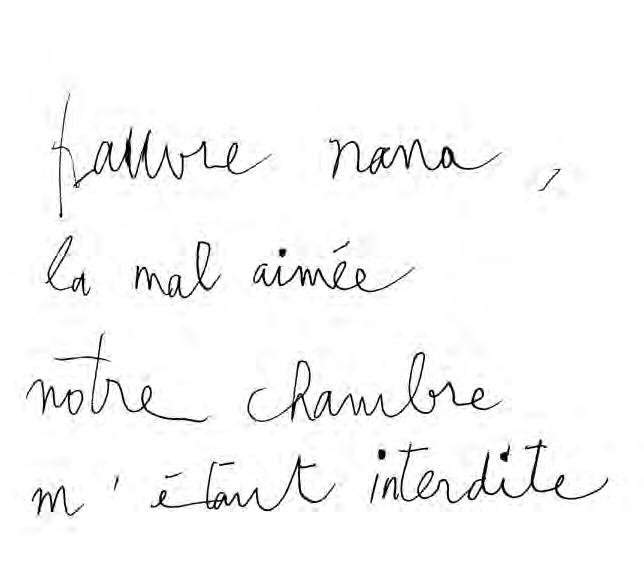 pauvre nana,
la mal aimée
notre chambre
m'étant interdite